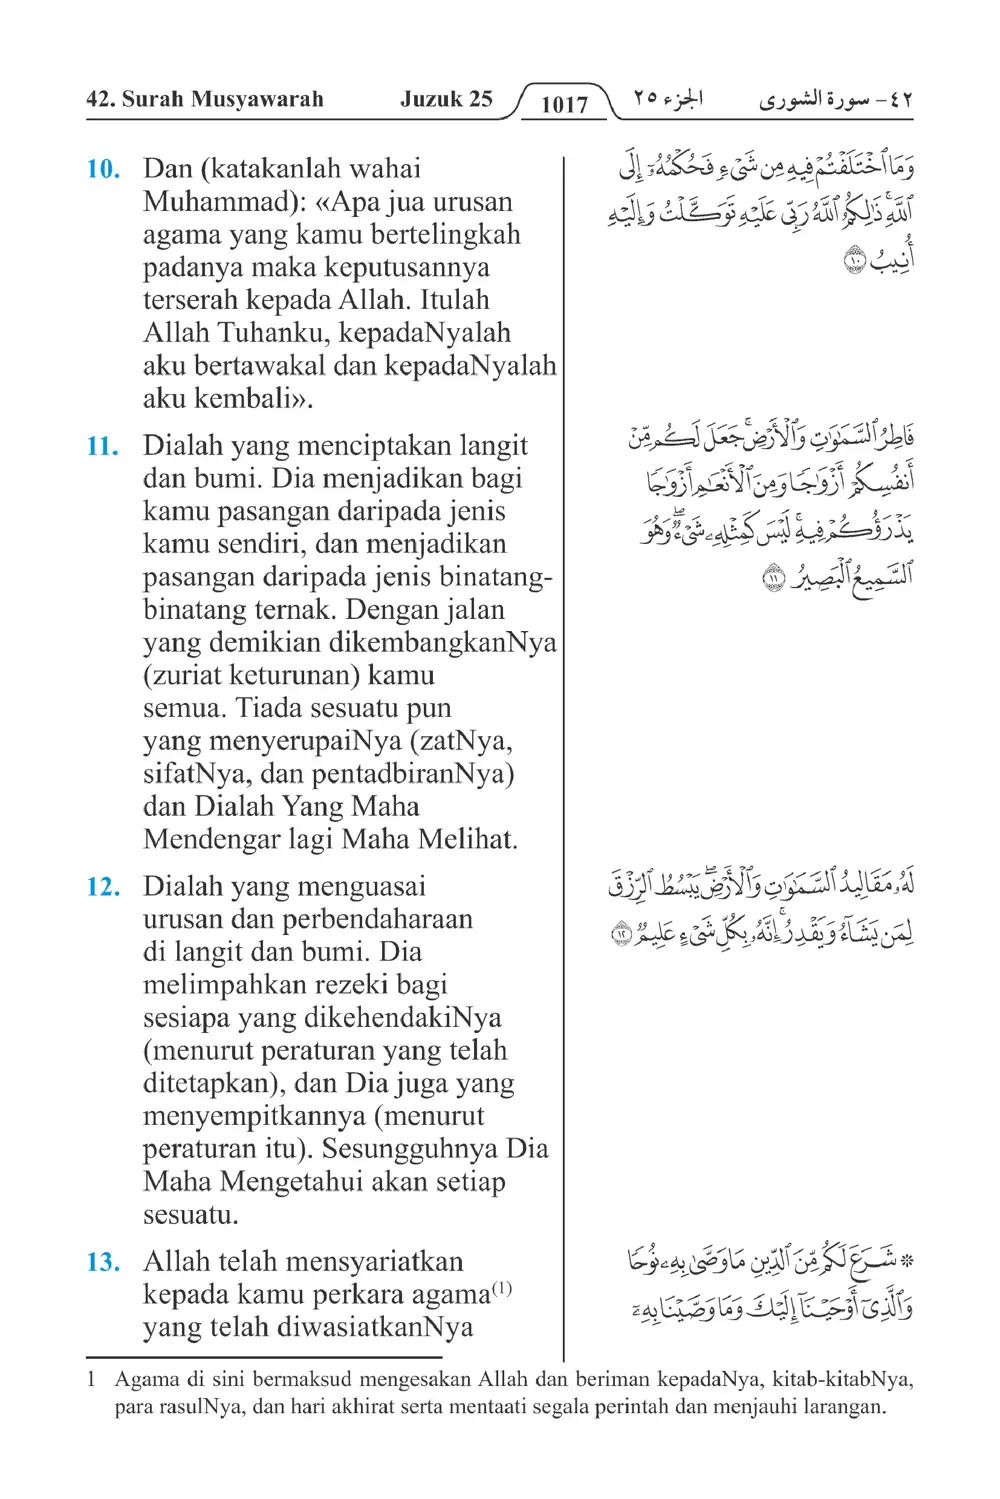 42. Surah Musyawarah Juzuk 25 1017 الجزء ٢٥ ٤٢ - سورة الشورى
10. Dan (katakanlah wahai
Muhammad): «Apa jua urusan
agama yang kamu bertelingkah
padanya maka keputusannya
terserah kepada Allah. Itulah
Allah Tuhanku, kepadaNyalah
aku bertawakal dan kepadaNyalah
aku kembali».
11. Dialah yang menciptakan langit
dan bumi. Dia menjadikan bagi
kamu pasangan daripada jenis
kamu sendiri, dan menjadikan
pasangan daripada jenis binatang-
binatang ternak. Dengan jalan
yang demikian dikembangkanNya
(zuriat keturunan) kamu
semua. Tiada sesuatu pun
yang menyerupaiNya (zatNya,
sifatNya, dan pentadbiranNya)
dan Dialah Yang Maha
Mendengar lagi Maha Melihat.
12. Dialah yang menguasai
urusan dan perbendaharaan
di langit dan bumi. Dia
melimpahkan rezeki bagi
sesiapa yang dikehendakiNya
(menurut peraturan yang telah
ditetapkan), dan Dia juga yang
menyempitkannya (menurut
peraturan itu). Sesungguhnya Dia
Maha Mengetahui akan setiap
sesuatu.
13. Allah telah mensyariatkan
kepada kamu perkara agama(1)
yang telah diwasiatkanNya
وَمَا ٱخْتَلَفْتُمْ فِيهِ مِن شَىْءٍ فَحُكْمُهُۥٓ إِلَى
ٱللَّهِۚ ذَٰلِكُمُ ٱللَّهُ رَبِّى عَلَيْهِ تَوَكَّلْتُ وَإِلَيْهِ
أُنِيبُ ۝١٠
فَاطِرُ ٱلسَّمَٰوَٰتِ وَٱلْأَرْضِۚ جَعَلَ لَكُم مِّنْ
أَنفُسِكُمْ أَزْوَٰجًا وَمِنَ ٱلْأَنْعَٰمِ أَزْوَٰجًا
يَذْرَؤُكُمْ فِيهِۚ لَيْسَ كَمِثْلِهِۦ شَىْءٌۖ وَهُوَ
ٱلسَّمِيعُ ٱلْبَصِيرُ ۝١١
لَهُۥ مَقَالِيدُ ٱلسَّمَٰوَٰتِ وَٱلْأَرْضِۖ يَبْسُطُ ٱلرِّزْقَ
لِمَن يَشَآءُ وَيَقْدِرُۚ إِنَّهُۥ بِكُلِّ شَىْءٍ عَلِيمٌ ۝١٢
۞ شَرَعَ لَكُم مِّنَ ٱلدِّينِ مَا وَصَّىٰ بِهِۦ نُوحًا
وَٱلَّذِىٓ أَوْحَيْنَآ إِلَيْكَ وَمَا وَصَّيْنَا بِهِۦٓ
1 Agama di sini bermaksud mengesakan Allah dan beriman kepadaNya, kitab-kitabNya,
para rasulNya, dan hari akhirat serta mentaati segala perintah dan menjauhi larangan.